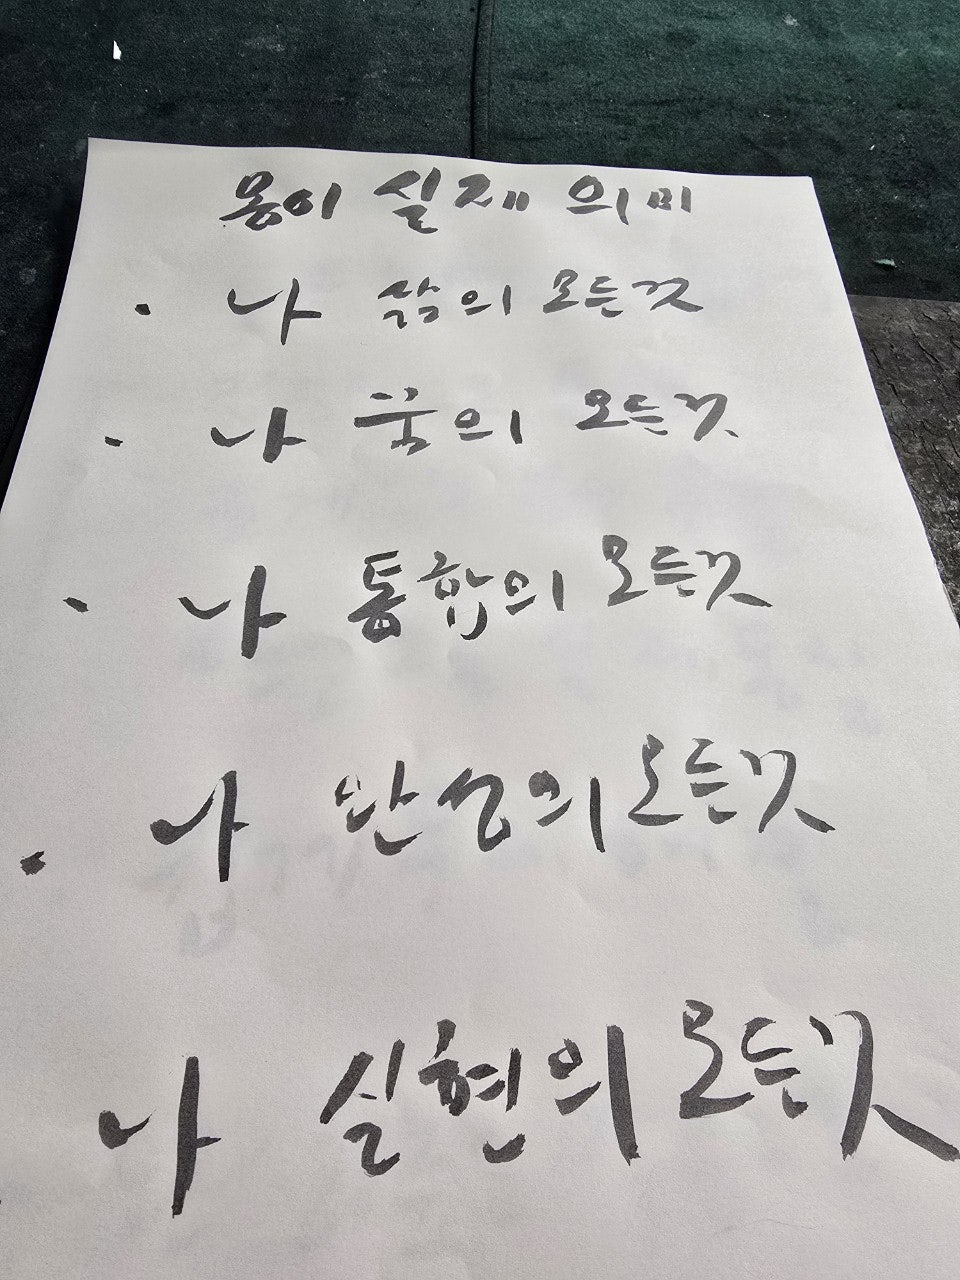 몸이 실재 의미
· 나 삶의 모든것
· 나 꿈의 모든것
· 나 통합의 모든것
· 나 안성의 모든것
나 실현의 모든것